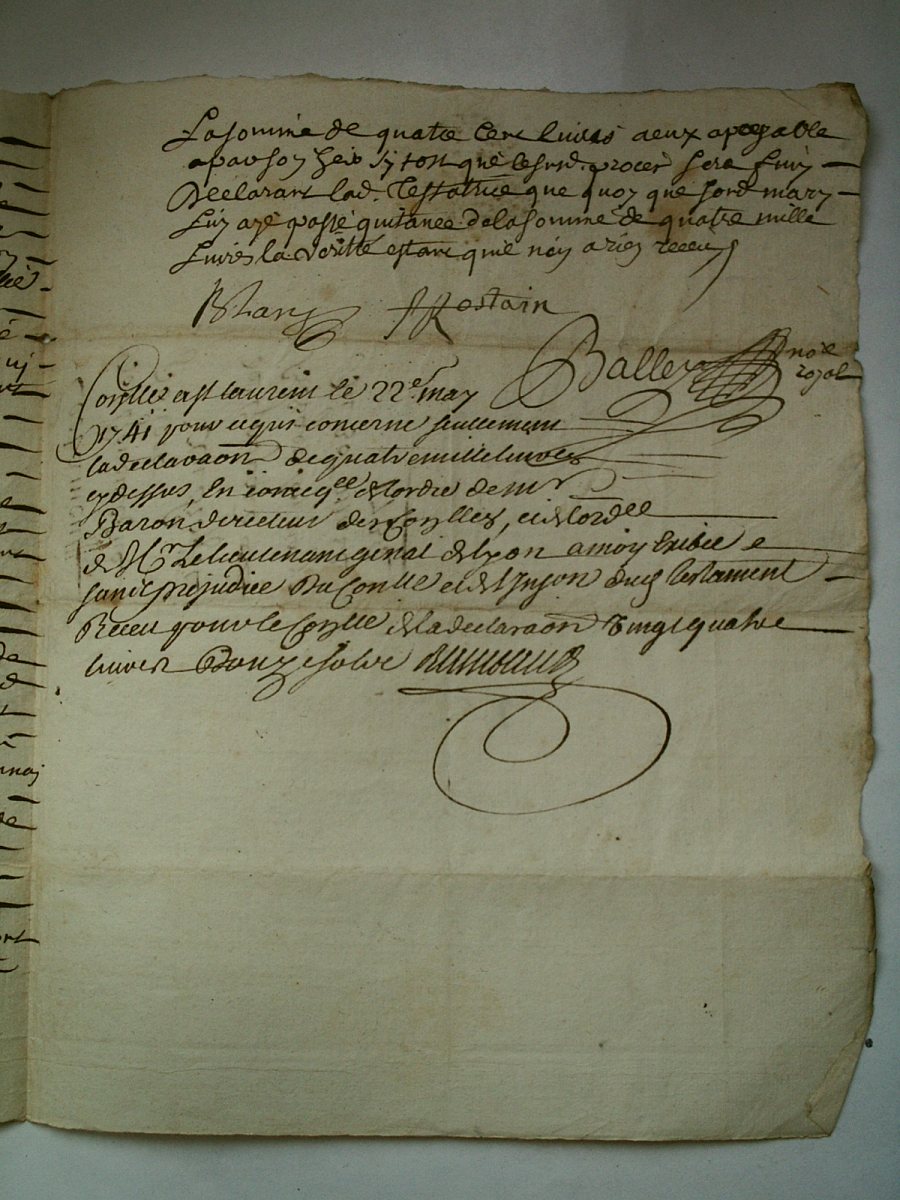 La somme de quatre Cent livres a eux payable
apar son heir sy tost que le surd. procer sera finy
Declarant lad. Testatrice que quoy que sond. mary
Luy aye passé quitance de la somme de quatre mille
Livres la verité estant quil ney a rien receu
Rostain
Balley no.e
royal
Con.llé a st laurent le 22.e may
1741 pour ce qui concerne seullement
la declaraon de quatre mille livres
cy dessus, En conseq.ce de lordre de m.r
Baron directeur des Con.lles, et de lord.ce
de M.r Le lieutenant genal de lyon a moy Exibée e
sans prejudice Du Con.lle et de du.. testament
Receu pour le Con.lle de la declaraon Vingt quatre
livres Douze sols